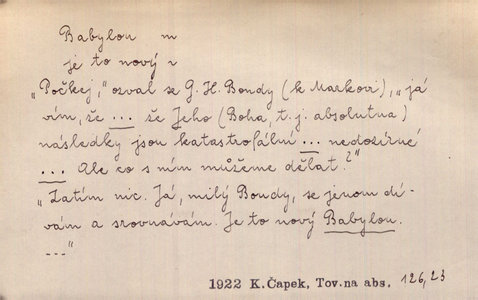 Babylon m
je to nový n
„Počkej,“ ozval se G. H. Bondy (k Markovi), „já
vím, že ... že Jeho (Boha, t. j. absolutna)
následky jsou katastrofální ... nedozírné
... Ale co s ním můžeme dělat?“
„Zatím nic. Já, milý Bondy, se jenom dí-
vám a srovnávám. Je to nový Babylon.
...“
1922 K.Čapek, Tov.na abs. 126,23